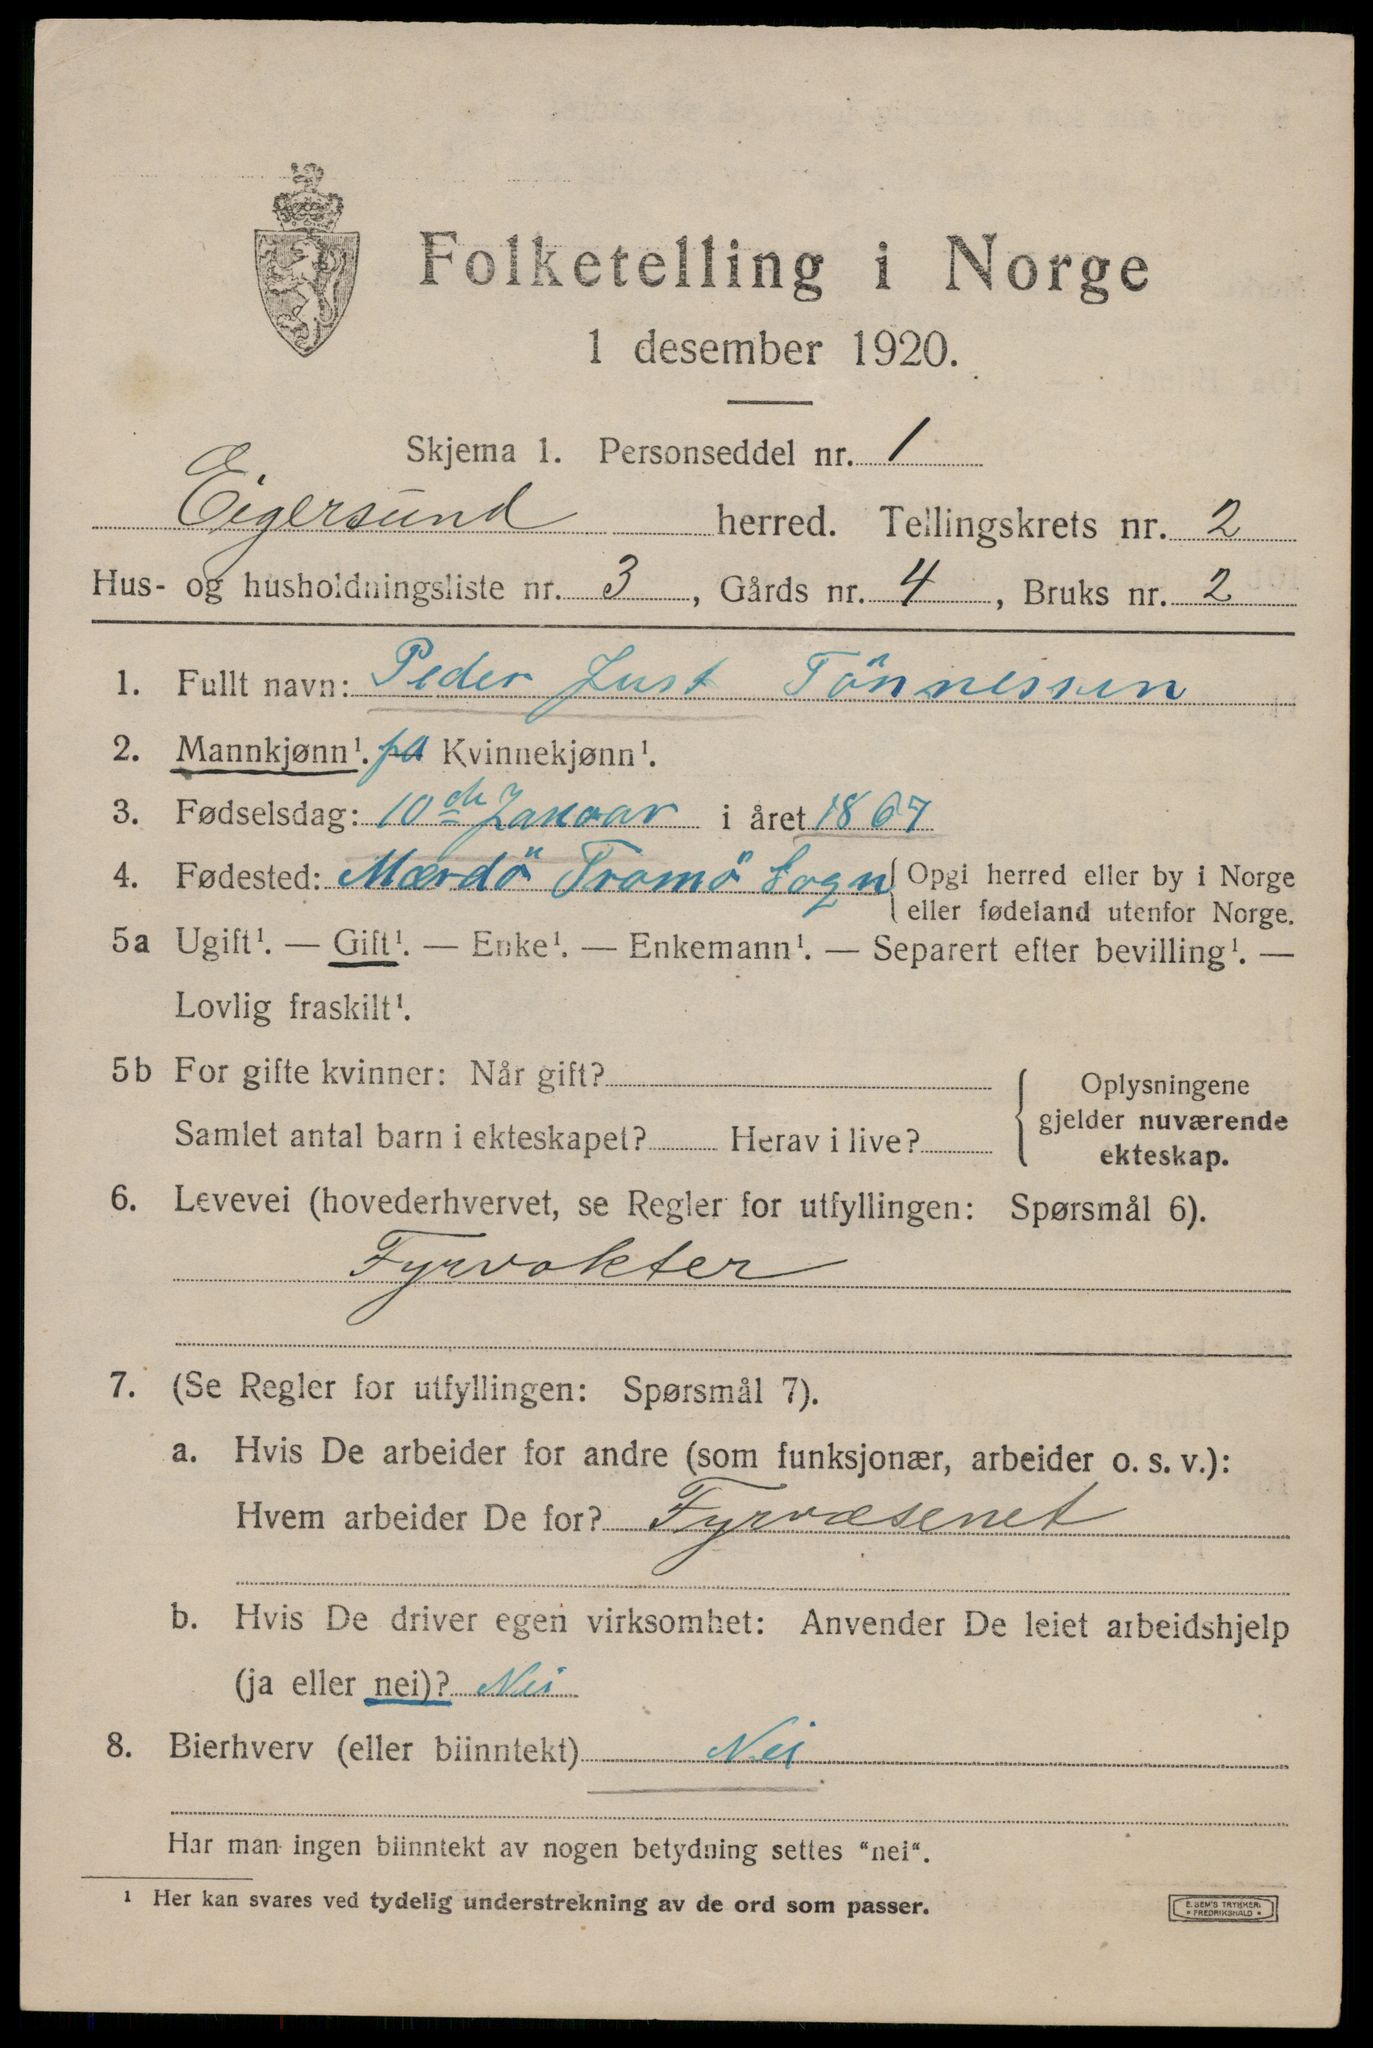 Folketelling i Norge
1 desember 1920.
Skjema 1. Personseddel nr. 1
Eigersund herred. Tellingskrets nr. 2
Hus- og husholdningsliste nr. 3, Gårds nr. 4, Bruks nr. 2
1. Fullt navn: Peder Just Tönnessen
2. Mannkjønn¹. Kvinnekjønn¹.
3. Fødselsdag: 10de Januar i året 1867
4. Fødested: Mærdö Tromö Sogn { Opgi herred eller by i Norge
eller fødeland utenfor Norge.
5a Ugift¹. — Gift¹. — Enke¹. — Enkemann¹. — Separert efter bevilling¹. —
Lovlig fraskilt¹.
5b For gifte kvinner: Når gift?
Samlet antal barn i ekteskapet? Herav i live?
{ Oplysningene
gjelder nuværende
ekteskap.
6. Levevei (hovederhvervet, se Regler for utfyllingen: Spørsmål 6).
Fyrvokter
7. (Se Regler for utfyllingen: Spørsmål 7).
a. Hvis De arbeider for andre (som funksjonær, arbeider o. s. v.):
Hvem arbeider De for? Fyrvæsenet
b. Hvis De driver egen virksomhet: Anvender De leiet arbeidshjelp
(ja eller nei)? Nei
8. Bierhverv (eller biinntekt) Nei
Har man ingen biinntekt av nogen betydning settes "nei".
¹ Her kan svares ved tydelig understrekning av de ord som passer.
E. SEM'S TRYKKERI
* FREDRIKSHALD *